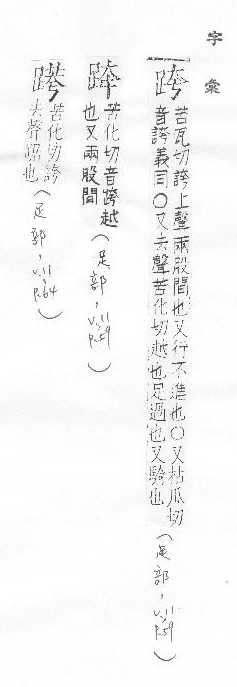 字彙
跨 苦瓦切誇上聲兩股間也又行不進也〇又枯瓜切
音誇義同〇又去聲苦化切越也足過也又騎也(足部,v.11 p.59)
苦化切音跨越
也又兩股間(足部,v.11 p.59)
苦化切誇
去聲踞也(足部,v.11 p.64)